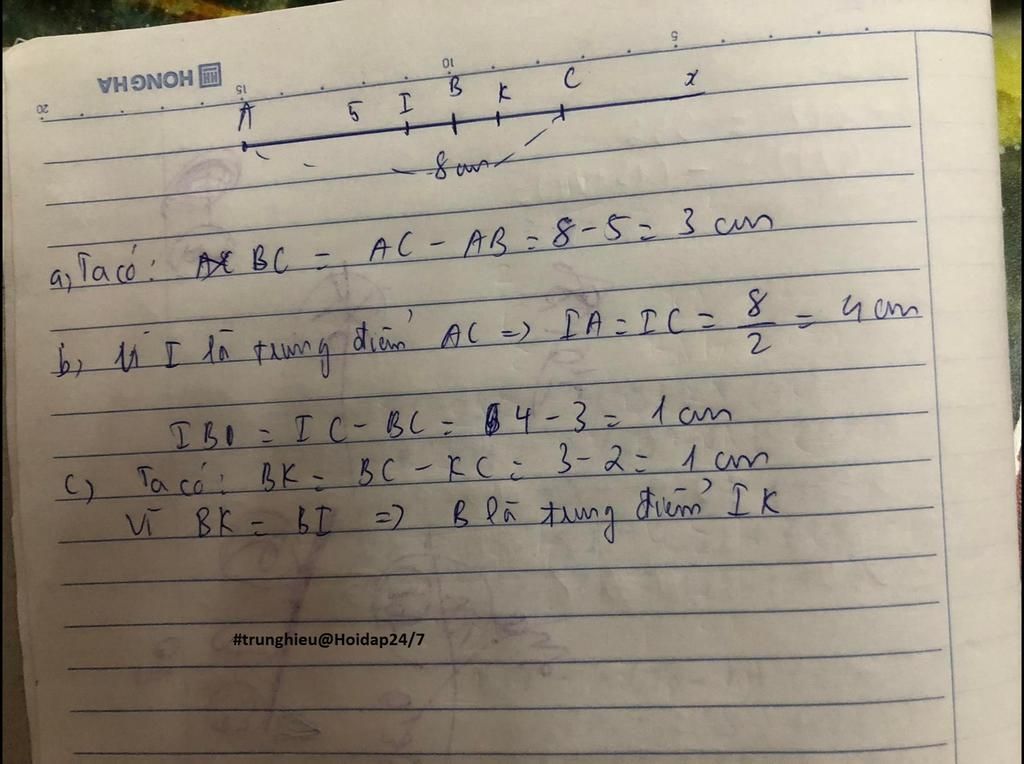 HONG HA
20 15 10 5
A 5 I B K C x
8 cm
a, Ta có: BC = AC - AB = 8 - 5 = 3 cm
b, Vì I là trung điểm AC => IA = IC = 8/2 = 4 cm
IB = IC - BC = 4 - 3 = 1 cm
c) Ta có: BK = BC - KC = 3 - 2 = 1 cm
Vì BK = BI => B là trung điểm IK
#trunghieu@Hoidap24/7